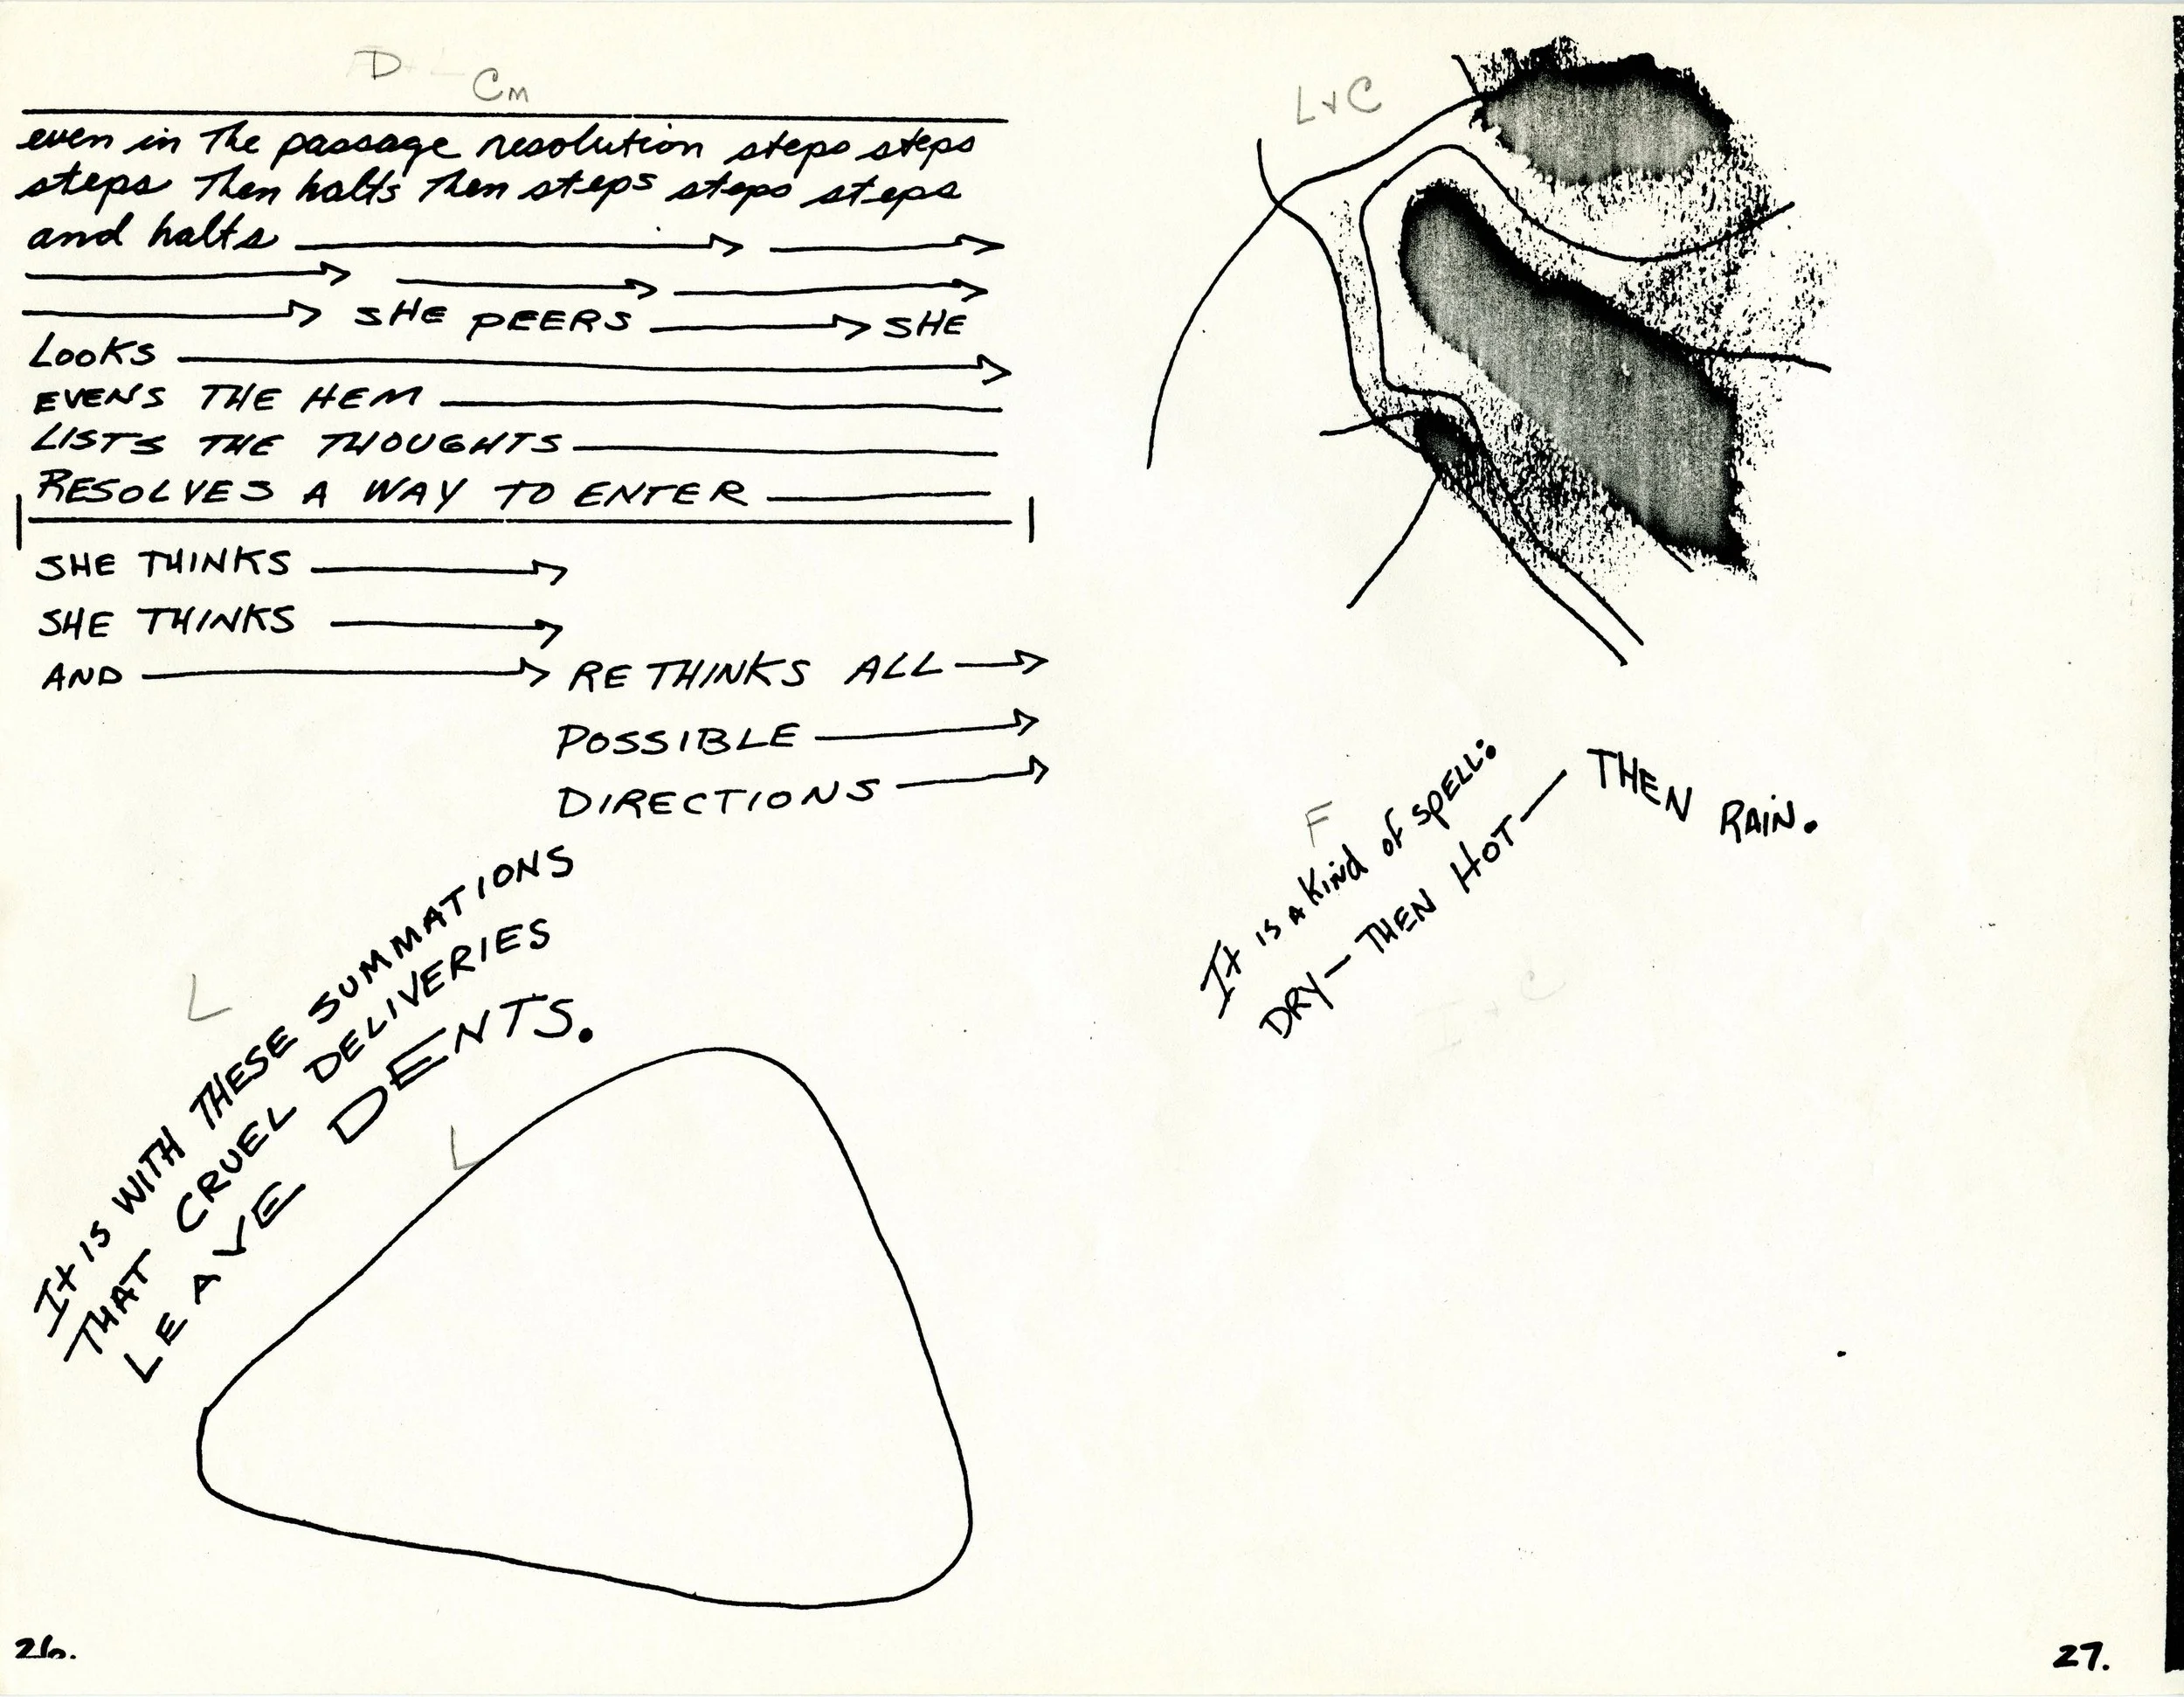 D
Cm
even in the passage resolution steps steps
steps then halts then steps steps steps
and halts
SHE PEERS SHE
LOOKS
EVENS THE HEM
LISTS THE THOUGHTS
RESOLVES A WAY TO ENTER
SHE THINKS
SHE THINKS
AND RETHINKS ALL
POSSIBLE
DIRECTIONS
L
It is WITH THESE SUMMATIONS
THAT CRUEL DELIVERIES
LEAVE DENTS.
L
26.
L+C
F
It is a Kind of spell:
DRY — THEN HOT — THEN RAiN.
I + C
27.